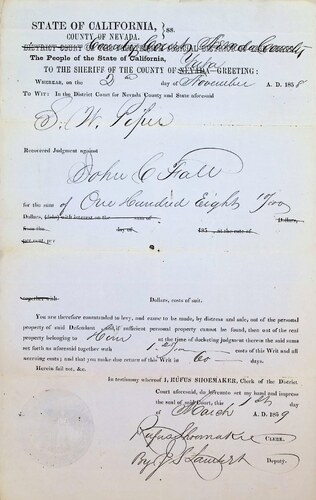 STATE OF CALIFORNIA, } ss.
COUNTY OF NEVADA.
DISTRICT COURT County Court, Nevada County
The People of the State of California,
TO THE SHERIFF OF THE COUNTY OF NEVADA Yuba GREETING:
WHEREAS, on 3rd day of November A. D. 1858
TO WIT: In the District Court for Nevada County and State aforesaid
S. W. Piper
Recovered Judgment against
John C Fall
for the sum of One Hundred Eight
Dollars, (with interest on the sum of Dollars,
from the day of 185 , at the rate of
per cent. per
together with Dollars, costs of suit.
You are therefore commanded to levy, and cause to be made, by distress and sale, out of the personal
property of said Defendant and, if sufficient personal property cannot be found, then out of the real
property belonging to Him at the time of docketing judgment thereon the said sums
set forth as aforesaid together with costs of this Writ and all
accruing costs; and that you make due return of this Writ in 60 days.
Herein fail not, &c.
In testimony whereof I, RUFUS SHOEMAKER, Clerk of the District
Court aforesaid, do hereunto set my hand and impress
the seal of said Court, this 1st day
of March A. D. 1859
Rufus Shoemaker CLERK.
By J S Lambert Deputy.